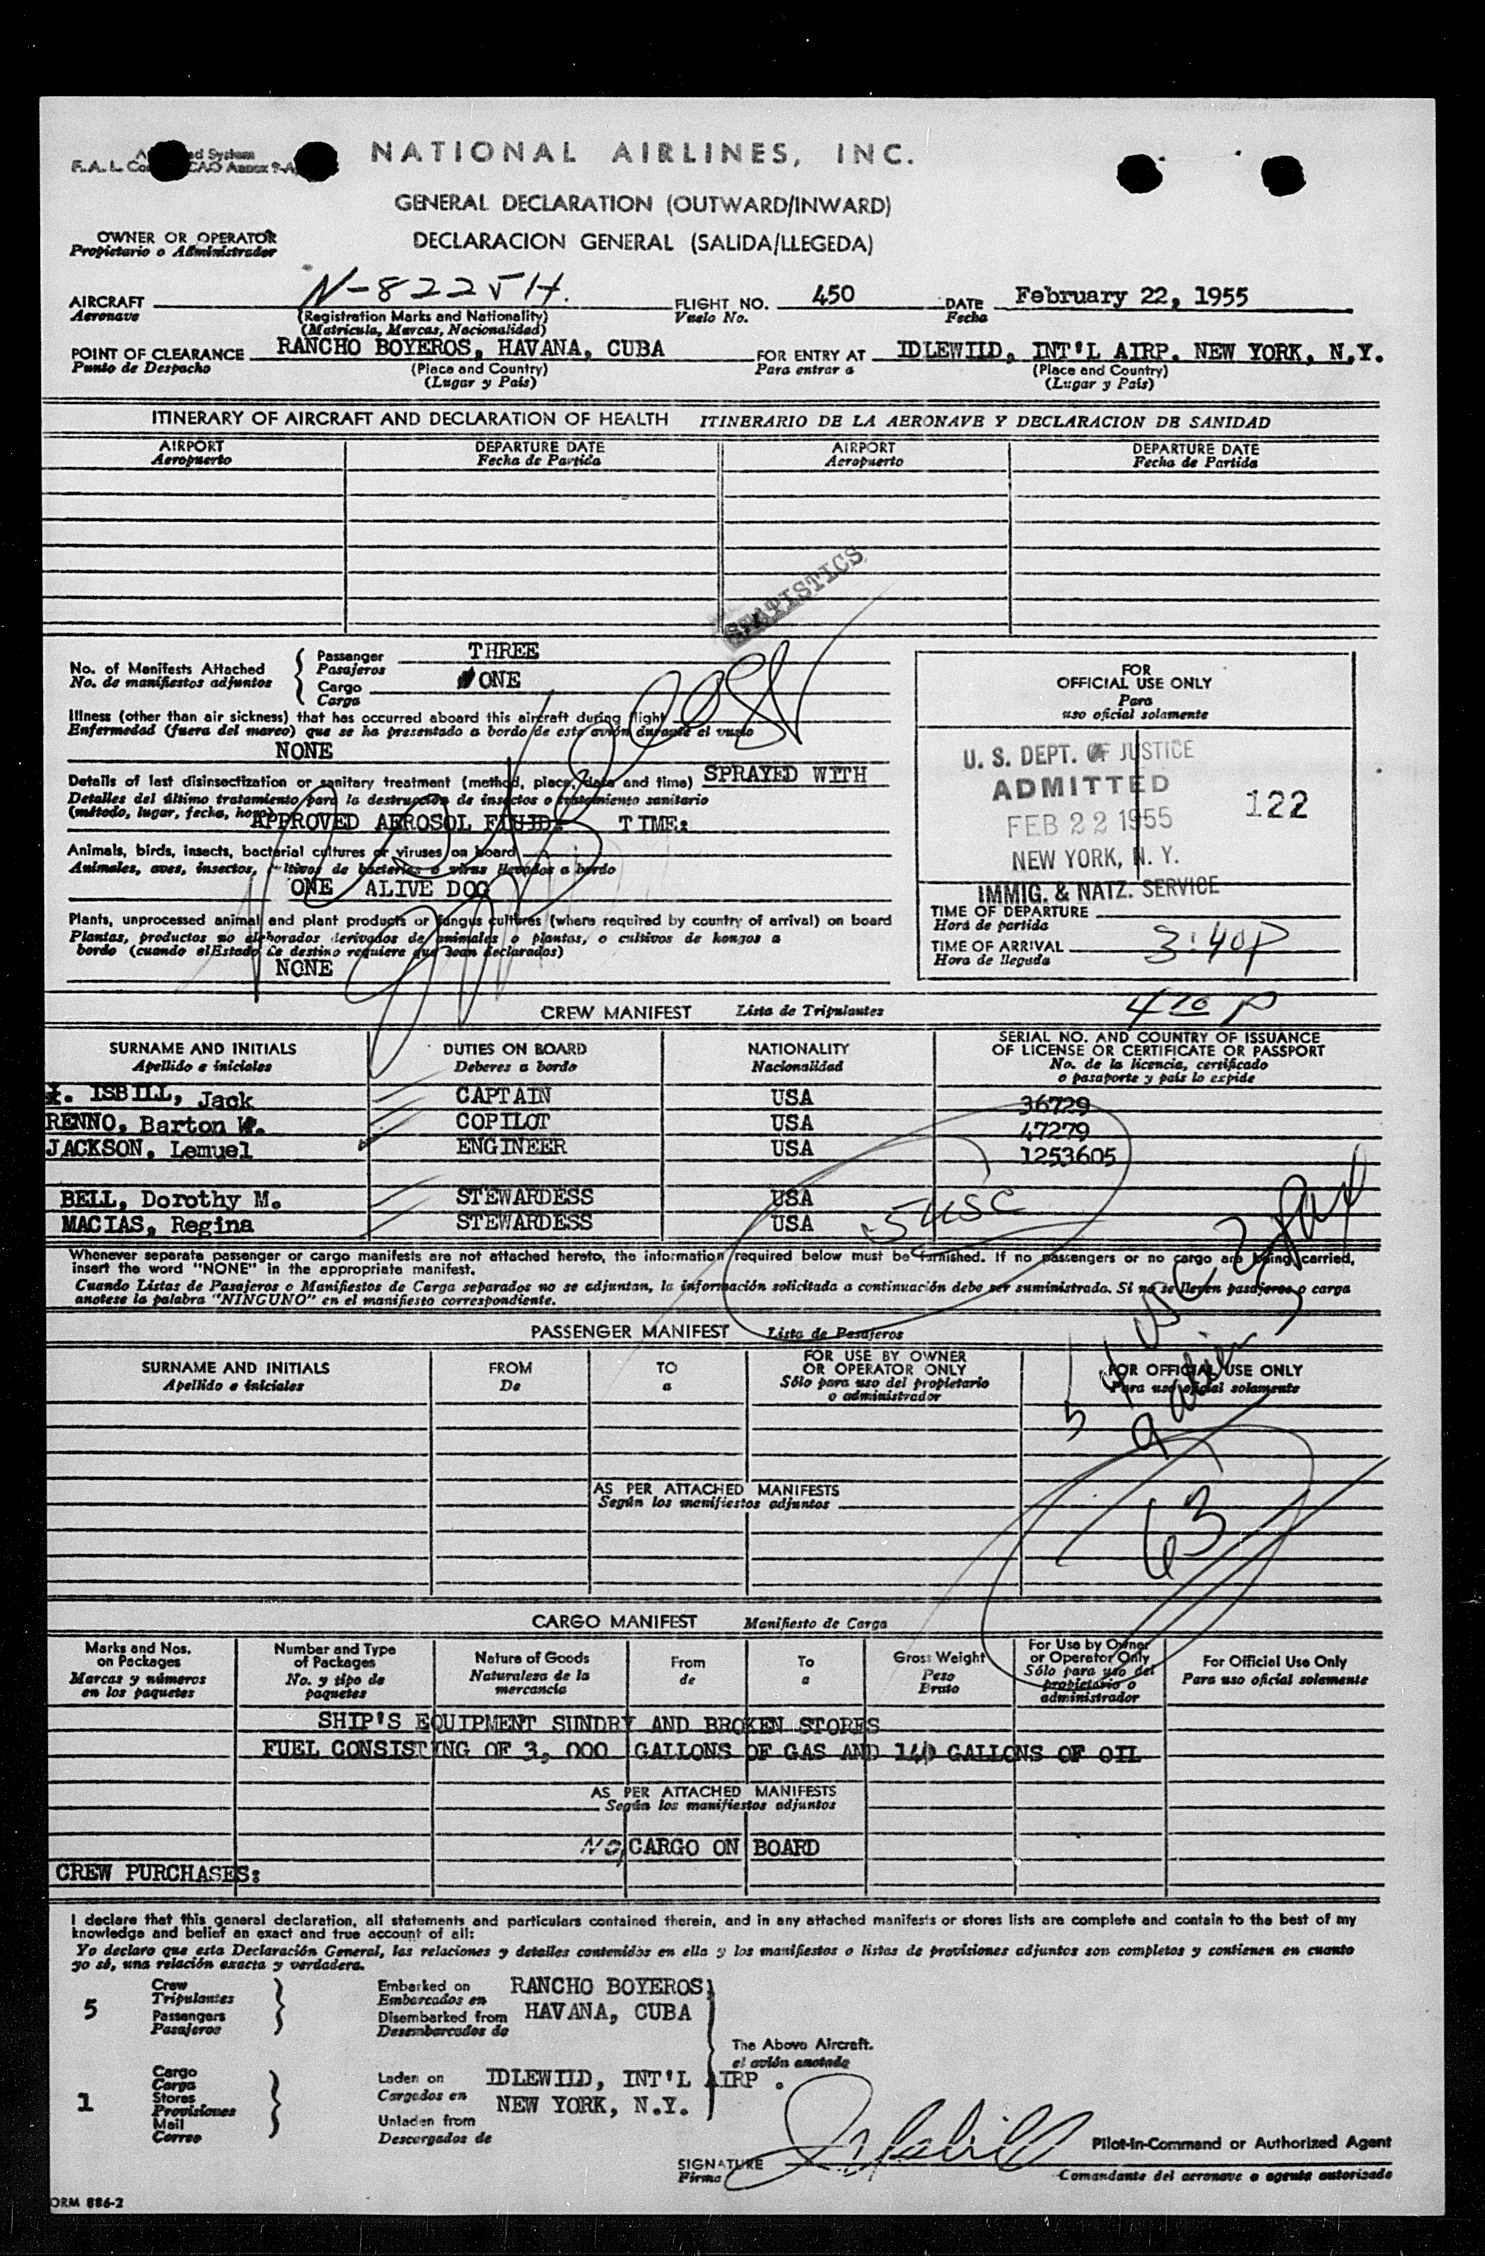 NATIONAL AIRLINES, INC.
GENERAL DECLARATION (OUTWARD/INWARD)
OWNER OR OPERATOR
Propietario o Administrador
DECLARACION GENERAL (SALIDA/LLEGEDA)
AIRCRAFT N-8225H. FLIGHT NO. 450 DATE February 22, 1955
Aeronave (Registration Marks and Nationality) Vuelo No. Fecha
(Matricula, Marcas, Nacionalidad)
POINT OF CLEARANCE RANCHO BOYEROS, HAVANA, CUBA FOR ENTRY AT IDLEWILD, INT'L AIRP. NEW YORK, N.Y.
Punto de Despacho (Place and Country) Para entrar a (Place and Country)
(Lugar y País) (Lugar y País)
ITINERARY OF AIRCRAFT AND DECLARATION OF HEALTH ITINERARIO DE LA AERONAVE Y DECLARACION DE SANIDAD
AIRPORT DEPARTURE DATE AIRPORT DEPARTURE DATE
Aeropuerto Fecha de Partida Aeropuerto Fecha de Partida
STATISTICS
No. of Manifests Attached Passenger THREE
No. de manifiestos adjuntos Pasajeros
Cargo ONE
Carga
Illness (other than air sickness) that has occurred aboard this aircraft during flight
Enfermedad (fuera del mareo) que se ha presentado a bordo de este avión durante el vuelo
NONE
Details of last disinsectization or sanitary treatment (method, place, date and time) SPRAYED WITH
Detalles del último tratamiento para la destrucción de insectos o tratamiento sanitario
(método, lugar, fecha, hora)
APPROVED AEROSOL FLUID. TIME:
Animals, birds, insects, bacterial cultures or viruses on board
Animales, aves, insectos, cultivos de bacterias o virus llevados a bordo
ONE ALIVE DOG
Plants, unprocessed animal and plant products or fungus cultures (where required by country of arrival) on board
Plantas, productos no elaborados derivados de animales o plantas, o cultivos de hongos a
bordo (cuando el Estado de destino requiere que sean declarados)
NONE
FOR
OFFICIAL USE ONLY
Para
uso oficial solamente
U. S. DEPT. OF JUSTICE
ADMITTED
122
FEB 22 1955
NEW YORK, N. Y.
IMMIG. & NATZ. SERVICE
TIME OF DEPARTURE
Hora de partida
TIME OF ARRIVAL 3:40P
Hora de llegada
4 20 P
CREW MANIFEST Lista de Tripulantes
SURNAME AND INITIALS DUTIES ON BOARD NATIONALITY SERIAL NO. AND COUNTRY OF ISSUANCE
OF LICENSE OR CERTIFICATE OR PASSPORT
Apellido e iniciales Deberes a bordo Nacionalidad No. de la licencia, certificado
o pasaporte y país lo expide
ISBILL, Jack CAPTAIN USA 36729
RENNO, Barton W. COPILOT USA 47279
JACKSON, Lemuel ENGINEER USA 1253605
BELL, Dorothy M. STEWARDESS USA
MACIAS, Regina STEWARDESS USA
5 USC
Whenever separate passenger or cargo manifests are not attached hereto, the information required below must be furnished. If no passengers or no cargo are being carried,
insert the word "NONE" in the appropriate manifest.
Cuando Listas de Pasajeros o Manifiestos de Carga separados no se adjuntan, la información solicitada a continuación debe ser suministrada. Si no se lleven pasajeros o carga
anotese la palabra "NINGUNO" en el manifiesto correspondiente.
PASSENGER MANIFEST Lista de Pasajeros
SURNAME AND INITIALS FROM TO FOR USE BY OWNER
OR OPERATOR ONLY FOR OFFICIAL USE ONLY
Apellido e iniciales De a Sólo para uso del propietario
o administrador Para uso oficial solamente
63
AS PER ATTACHED MANIFESTS
Según los manifiestos adjuntos
CARGO MANIFEST Manifiesto de Carga
Marks and Nos.
on Packages
Marcas y números
en los paquetes
Number and Type
of Packages
No. y tipo de
paquetes
Nature of Goods
Naturaleza de la
mercancía
From
de
To
a
Gross Weight
Peso
Bruto
For Use by Owner
or Operator Only
Sólo para uso del
propietario o
administrador
For Official Use Only
Para uso oficial solamente
SHIP'S EQUIPMENT SUNDRY AND BROKEN STORES
FUEL CONSISTING OF 3, 000 GALLONS OF GAS AND 140 GALLONS OF OIL
AS PER ATTACHED MANIFESTS
Según los manifiestos adjuntos
NO CARGO ON BOARD
CREW PURCHASES:
I declare that this general declaration, all statements and particulars contained therein, and in any attached manifests or stores lists are complete and contain to the best of my
knowledge and belief an exact and true account of all:
Yo declaro que esta Declaración General, las relaciones y detalles contenidos en ella y los manifiestos o listas de provisiones adjuntos son completos y contienen en cuanto
yo sé, una relación exacta y verdadera.
5
Crew
Tripulantes
Passengers
Pasajeros
Embarked on RANCHO BOYEROS
Embarcados en
Disembarked from HAVANA, CUBA
Desembarcados de
The Above Aircraft.
el avión anotado
1
Cargo
Carga
Stores
Provisiones
Mail
Correo
Laden on IDLEWILD, INT'L AIRP.
Cargados en NEW YORK, N.Y.
Unladen from
Descargados de
SIGNATURE J Isbill Pilot-in-Command or Authorized Agent
Firma Comandante del aeronave o agente autorizado
ORM 886-2